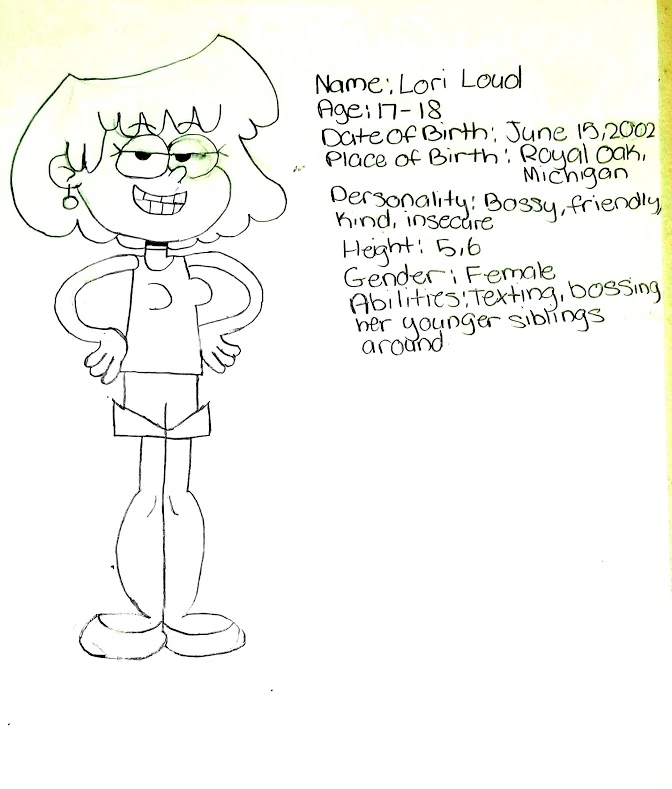 Name: Lori Loud
Age: 17-18
Date of Birth: June 15, 2002
Place of Birth: Royal Oak,
Michigan
Personality: Bossy, friendly,
Kind, insecure
Height: 5,6
Gender: Female
Abilities: Texting, bossing
her younger siblings
around